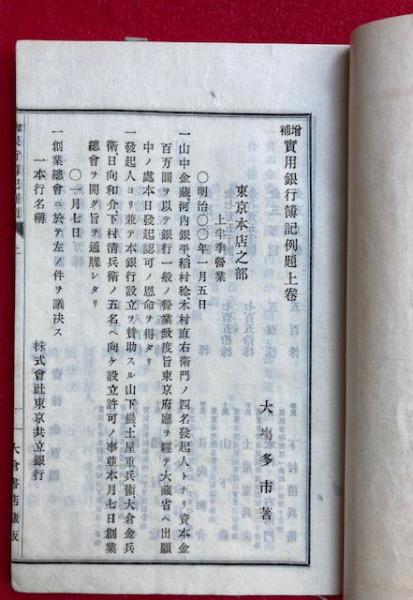 増補 實用銀行簿記例題上卷
大塲多市著
東京本店之部
上半季營業
〇明治〇〇年一月五日
一山中金藏河内銀平稻村稔木村直右衛門ノ四名發起人トナリ資本金
百万圓ヲ以テ銀行一般ノ營業致度旨東京府廳ヲ經テ大藏省ヘ出願
中ノ處本日發起認可ノ恩命ヲ得タリ
一發起人ヨリ兼テ本銀行設立ヲ賛助スル山下鐵土屋重兵衞大倉金兵
衛日向和介下村清兵衛ノ五名ヘ向ケ設立許可ノ事並本月七日創業
總會ヲ開グ旨ヲ通牒シタリ
〇一月七日
一創業總會ニ於テ左ノ件ヲ議决ス
一本行名稱
株式會社東京共立銀行
大倉書店藏版